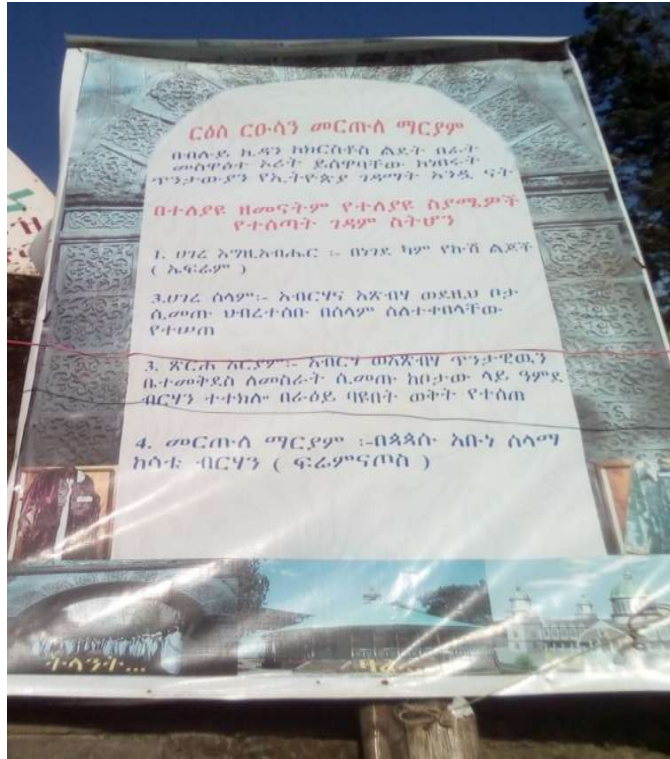 ርዕሰ ርዑሳን መርጡለ ማርያም
በብሉይ ኪዳን ከክርስቶስ ልደት በፊት
መስዋዕተ ኦሪት ይሰዋባቸው ከነበሩት
ጥንታውያን የኢትዮጵያ ገዳማት አንዷ ናት
በተለያዩ ዘመናትም የተለያዩ ስያሜዎች
የተሰጣት ገዳም ስትሆን
1. ሀገረ እግዚአብሔር ፡- በነገደ ካም የኩሽ ልጆች
( ኤፍራም )
3.ሀገረ ሰላም፡- አብርሃና አጽብሃ ወደዚህ ቦታ
ሲመጡ ህብረተሰቡ በሰላም ስለተቀበላቸው
የተሠጠ
3. ጽርሐ አርያም፡- አብርሃ ወአጽብሃ ጥንታዊዉን
ቤተመቅደስ ለመስራት ሲመጡ ከቦታው ላይ ዓምደ
ብርሃን ተተክሎ በራዕይ ባዩበት ወቅት የተሰጠ
4. መርጡለ ማርያም ፡-በጳጳሱ አቡነ ሰላማ
ከሳቴ ብርሃን ( ፍሬምናጦስ )
ትላንት...
ዛሬ...